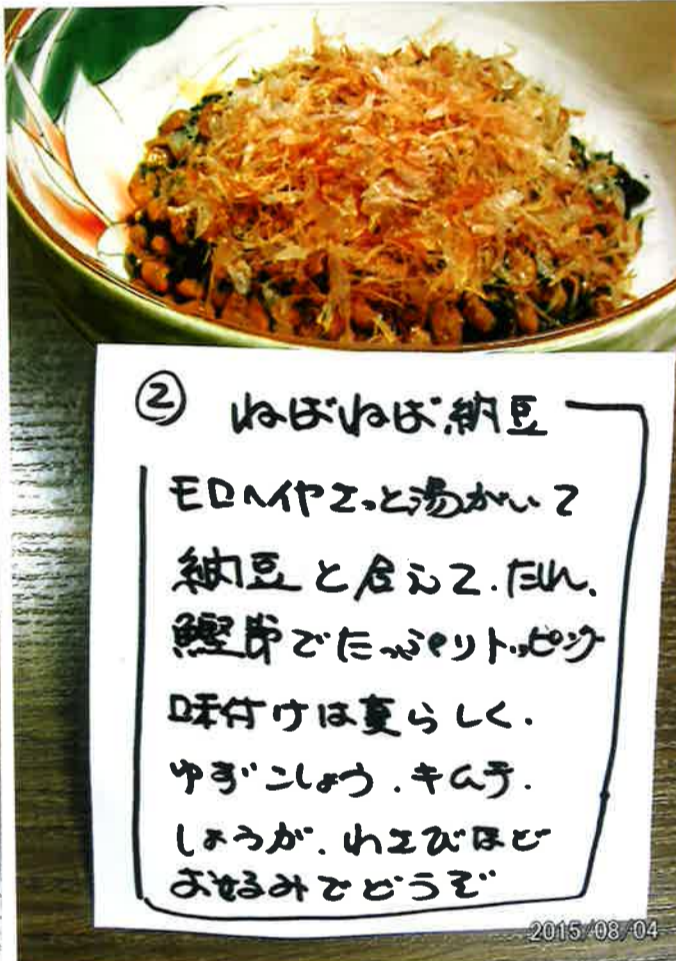 ② ねばねば納豆
モロヘイヤさっと湯がいて
納豆と合えて.たれ.
鰹節でたっぷりトッピング
味付けは夏らしく.
ゆずこしょう.キムチ.
しょうが.わさびなど
お好みでどうぞ
2015/08/04